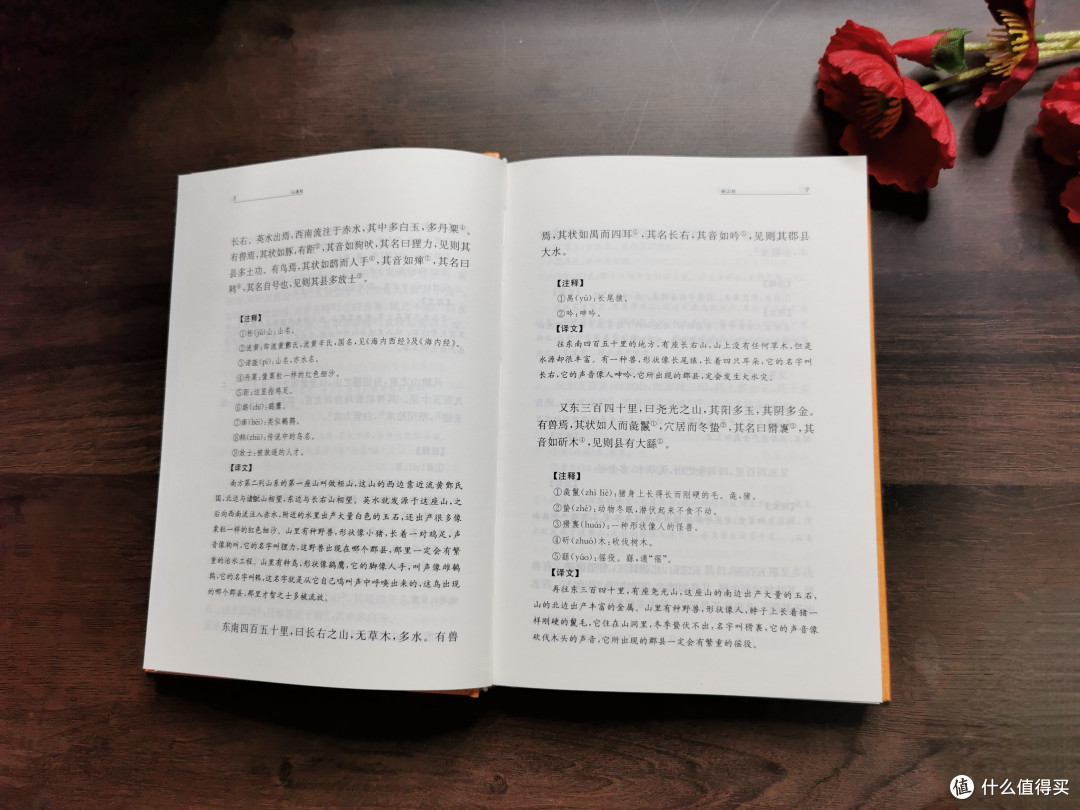 山海经
长右。英水出焉,西南流注于赤水,其中多白玉,多丹粟④。
有兽焉,其状如豚,有距⑤,其音如狗吠,其名曰狸力,见则其
县多土功。有鸟焉,其状如鸱而人手⑥,其音如痺⑦,其名曰
鴸⑧,其名自号也,见则其县多放士⑨。
【注释】
①柜(jǔ)山:山名。
②流黄:即流黄酆氏、流黄辛氏,国名,见《海内西经》及《海内经》。
④丹粟:像粟粒一样的红色细沙。
⑤距:这里指鸡足。
⑥鸱(chī):鹞鹰。
⑦痺(bēi):类似鹌鹑。
⑧鴸(zhū):传说中的鸟名。
⑨放士:被放逐的人才。
【译文】
南方第二列山系的第一座山叫做柜山,这山的西边靠近流黄酆氏
国,北边与诸毗山相望,东边与长右山相望。英水就发源于这座山,之
后向西南流注入赤水,附近的水里出产大量白色的玉石,还出产很多像
粟粒一样的红色细沙。山里有种野兽,形状像小猪,长着一对鸡足,声
音像狗叫,它的名字叫狸力,这野兽出现在哪个郡县,那里一定会有繁
重的治水工程。山里有种鸟,形状像鹞鹰,它的脚像人手,叫声像雌鹌
鹑,它的名字叫鴸,这名字就是从它自己鸣叫声中呼唤出来的,这鸟出现
的哪个郡县,那里才智之士多被流放。
东南四百五十里,曰长右之山,无草木,多水。有兽
南山经
焉,其状如禺而四耳①,其名长右,其音如吟②,见则其郡县
大水。
【注释】
①禺(yù):长尾猿。
②吟:呻吟。
【译文】
往东南四百五十里的地方,有座长右山,山上没有任何草木,但是
水源却很丰富。有一种兽,形状像长尾猿,长着四只耳朵,它的名字叫
长右,它的声音像人呻吟,它所出现的郡县,定会发生大水灾。
又东三百四十里,曰尧光之山,其阳多玉,其阴多金。
有兽焉,其状如人而彘鬣①,穴居而冬蛰②,其名曰猾褢③,其
音如斫木④,见则县有大繇⑤。
【注释】
①彘鬣(zhì liè):猪身上长得长而刚硬的毛。彘,猪。
②蛰(zhé):动物冬眠,潜伏起来不食不动。
③猾褢(huái):一种形状像人的怪兽。
④斫(zhuó)木:砍伐树木。
⑤繇(yáo):徭役。繇,通“徭”。
【译文】
再往东三百四十里,有座尧光山,这座山的南边出产大量的玉石,
山的北边出产丰富的金属。山里有种野兽,形状像人,脖子上长着猪一
样刚硬的鬣毛,它住在山洞里,冬季蛰伏不出,名字叫猾褢,它的声音像
砍伐木头的声音,它所出现的郡县一定会有繁重的徭役。
值 什么值得买